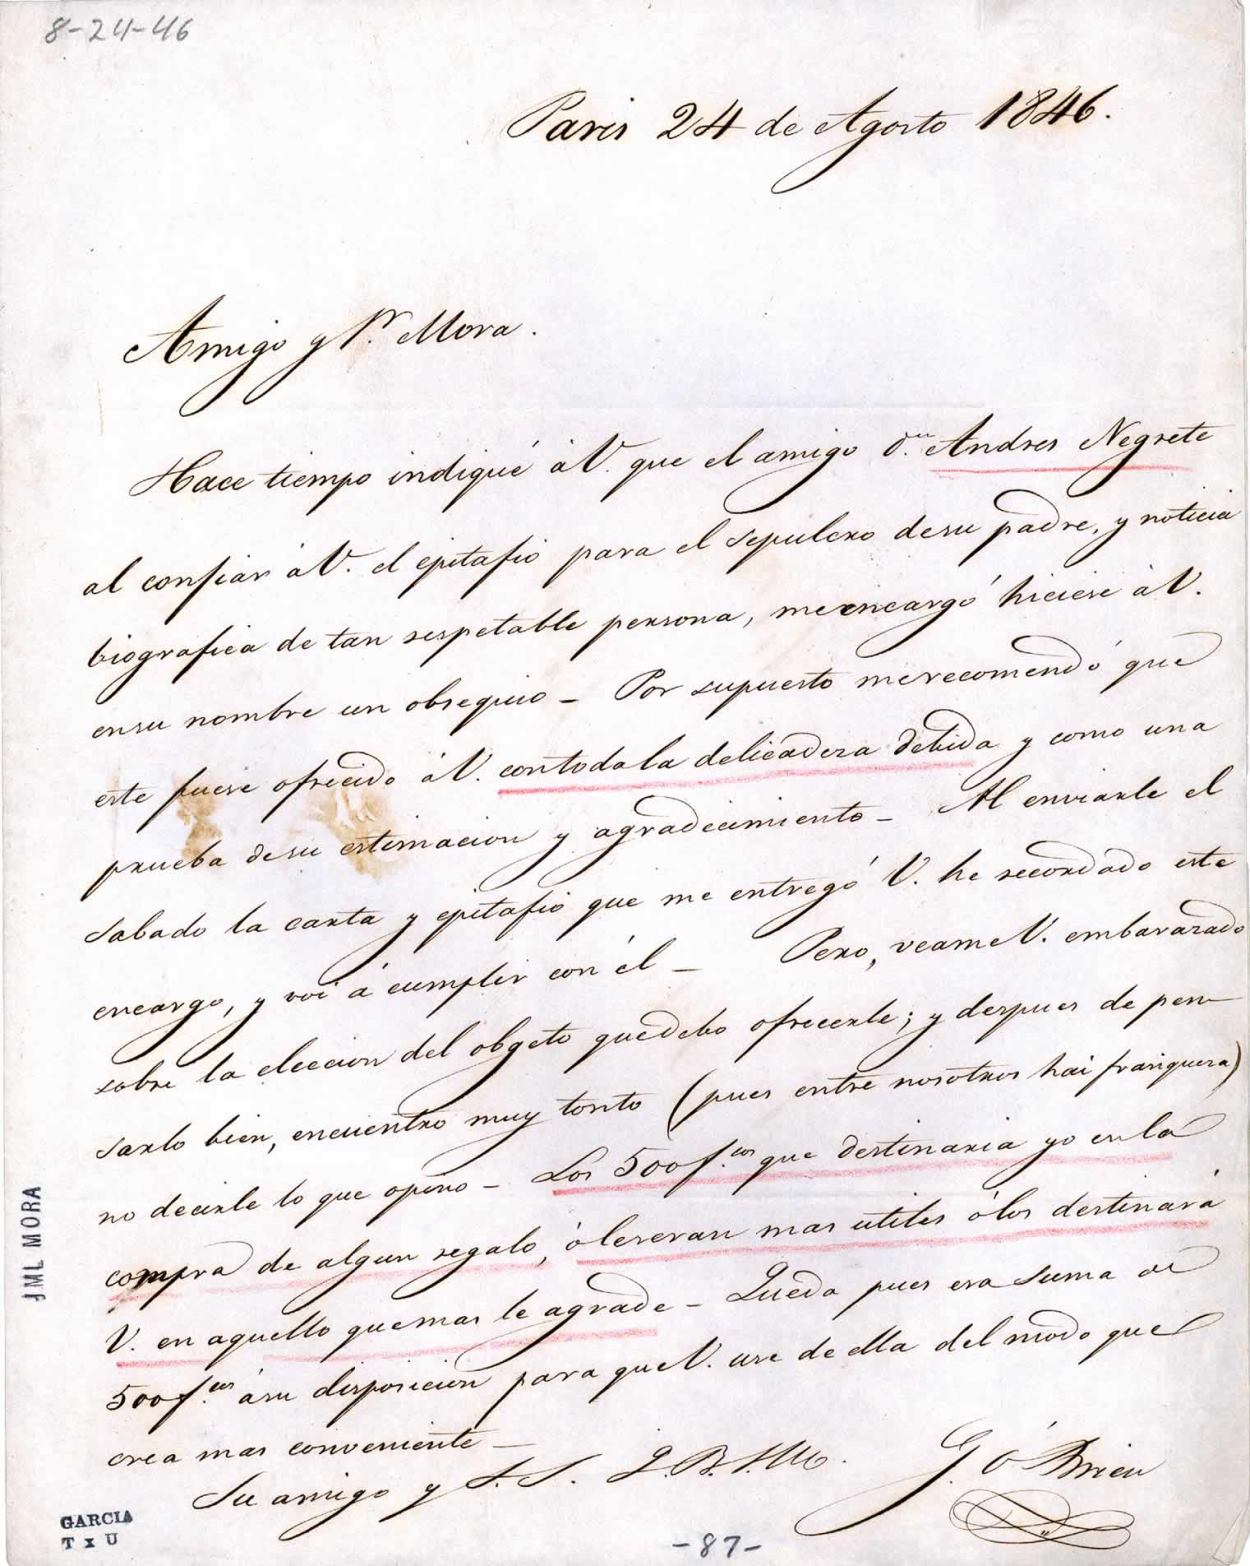 8-24-46
Paris 24 de Agosto 1846.
Amigo y Sr. Mora.
Hace tiempo indiqué á V. que el amigo Dn. Andres Negrete
al confiar á V. el epitafio para el sepulcro de su padre, y noticia
biografica de tan respetable persona, me encargó hiciese á V.
en su nombre un obsequio — Por supuesto me recomendó que
este fuese ofrecido á V. con toda la delicadeza debida y como una
prueba de su estimacion y agradecimiento — Al enviarle el
sabado la carta y epitafio que me entregó V. he recordado este
encargo, y voi á cumplir con él — Pero, veame V. embarazado
sobre la eleccion del obgeto que debo ofrecerle; y despues de pen-
sarlo bien, encuentro muy tonto (pues entre nosotros hai franqueza)
no decirle lo que opino — Los 500 f.cos que destinaria yo en la
compra de algun regalo, ó le seran mas utiles ó los destinará
V. en aquello que mas le agrade — Queda pues esa suma de
500 f.cos á su disposicion para que V. use de ella del modo que
crea mas conveniente —
Su amigo y S. S. Q. B. S. M.
G. O'Brien
JML MORA
GARCIA
T x U
-87-